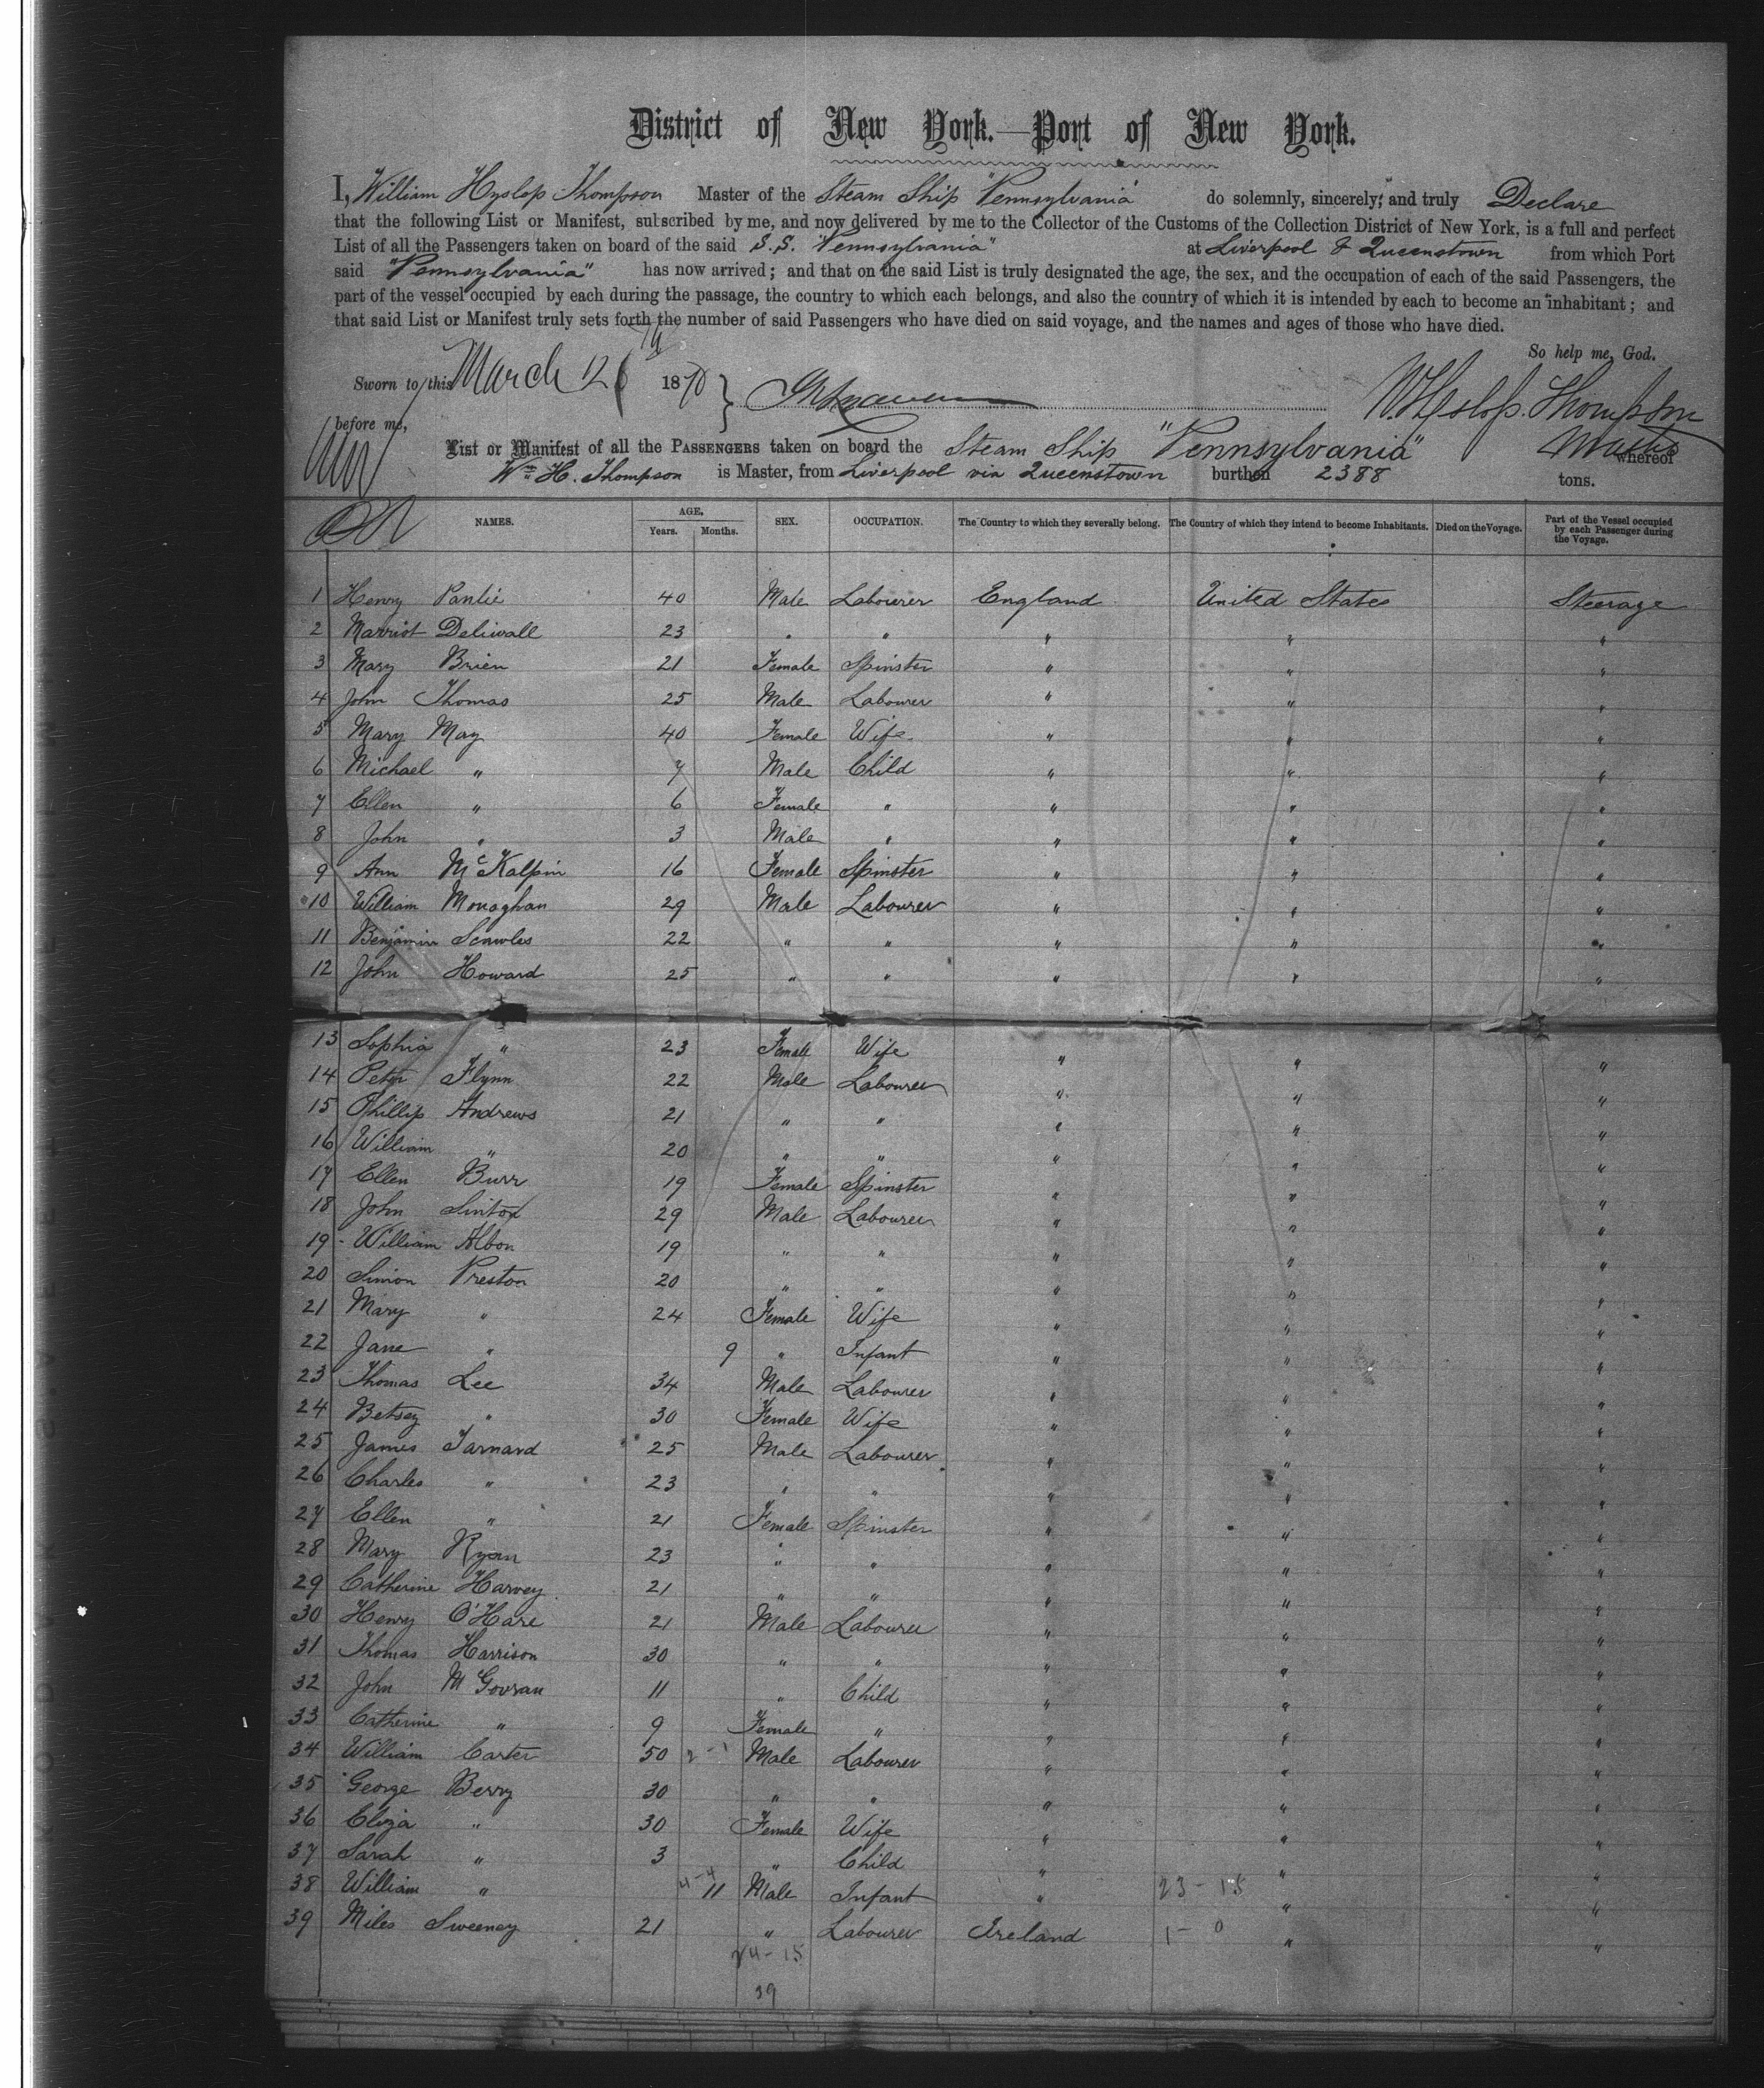 District of New York.—Port of New York.
I, William Hyslop Thompson Master of the Steam Ship "Pennsylvania" do solemnly, sincerely, and truly Declare
that the following List or Manifest, subscribed by me, and now delivered by me to the Collector of the Customs of the Collection District of New York, is a full and perfect
List of all the Passengers taken on board of the said S.S. "Pennsylvania" at Liverpool & Queenstown from which Port
said "Pennsylvania" has now arrived; and that on the said List is truly designated the age, the sex, and the occupation of each of the said Passengers, the
part of the vessel occupied by each during the passage, the country to which each belongs, and also the country of which it is intended by each to become an inhabitant; and
that said List or Manifest truly sets forth the number of said Passengers who have died on said voyage, and the names and ages of those who have died.
So help me, God.
Sworn to this March 1870 W. Hyslop. Thompson
before me, Master
List or Manifest of all the PASSENGERS taken on board the Steam Ship "Pennsylvania" whereof
Wm. H. Thompson is Master, from Liverpool via Queenstown burthen 2388 tons.
NAMES. AGE. Years. Months. SEX. OCCUPATION. The Country to which they severally belong. The Country of which they intend to become Inhabitants. Died on the Voyage. Part of the Vessel occupied by each Passenger during the Voyage.
1 Henry 40 Male Labourer England United States Steerage
2 Marriot Deliwall 23 " " " " "
3 Mary Brien 21 Female Spinster " " "
4 John Thomas 25 Male Labourer " " "
5 Mary May 40 Female Wife " " "
6 Michael " 7 Male Child " " "
7 Ellen " 6 Female " " " "
8 John " 3 Male " " " "
9 Ann McKalpin 16 Female Spinster " " "
10 William Monaghan 29 Male Labourer " " "
11 Benjamin 22 " " " " "
12 John Howard 25 " " " " "
13 Sophia " 23 Female Wife " " "
14 Peter Flynn 22 Male Labourer " " "
15 Phillip Andrews 21 " " " " "
16 William " 20 " " " " "
17 Ellen Burr 19 Female Spinster " " "
18 John Sinton 29 Male Labourer " " "
19 William Albon 19 " " " " "
20 Simon Preston 20 " " " " "
21 Mary " 24 Female Wife " " "
22 Jane " 9 " Infant " " "
23 Thomas Lee 34 Male Labourer " " "
24 Betsey " 30 Female Wife " " "
25 James Tarnard 25 Male Labourer " " "
26 Charles " 23 " " " " "
27 Ellen " 21 Female Spinster " " "
28 Mary Ryan 23 " " " " "
29 Catherine Harvey 21 " " " " "
30 Henry O'Hare 21 Male Labourer " " "
31 Thomas Harrison 30 " " " " "
32 John McGovran 11 " Child " " "
33 Catherine " 9 Female " " " "
34 William Carter 50 2-1 Male Labourer " " "
35 George Berry 30 " " " " "
36 Eliza " 30 Female Wife " " "
37 Sarah " 3 " Child " " "
38 William " 4-4 11 Male Infant " 23-15 " "
39 Miles Sweeney 21 " Labourer Ireland 1-0 " "
24-15
39